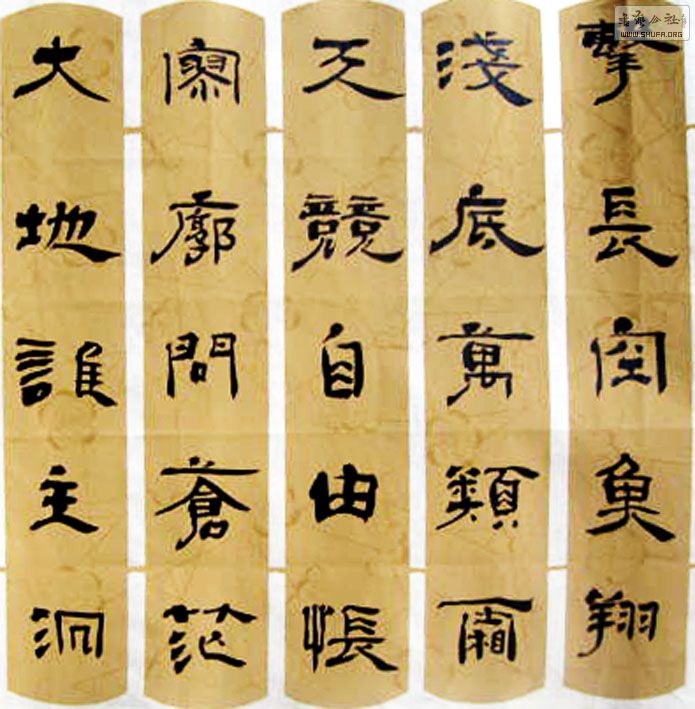 擊長空魚翔
淺底萬類霜
天競自由悵
寥廓問蒼茫
大地誰主沉
书艺公社
WWW.SHUFA.ORG